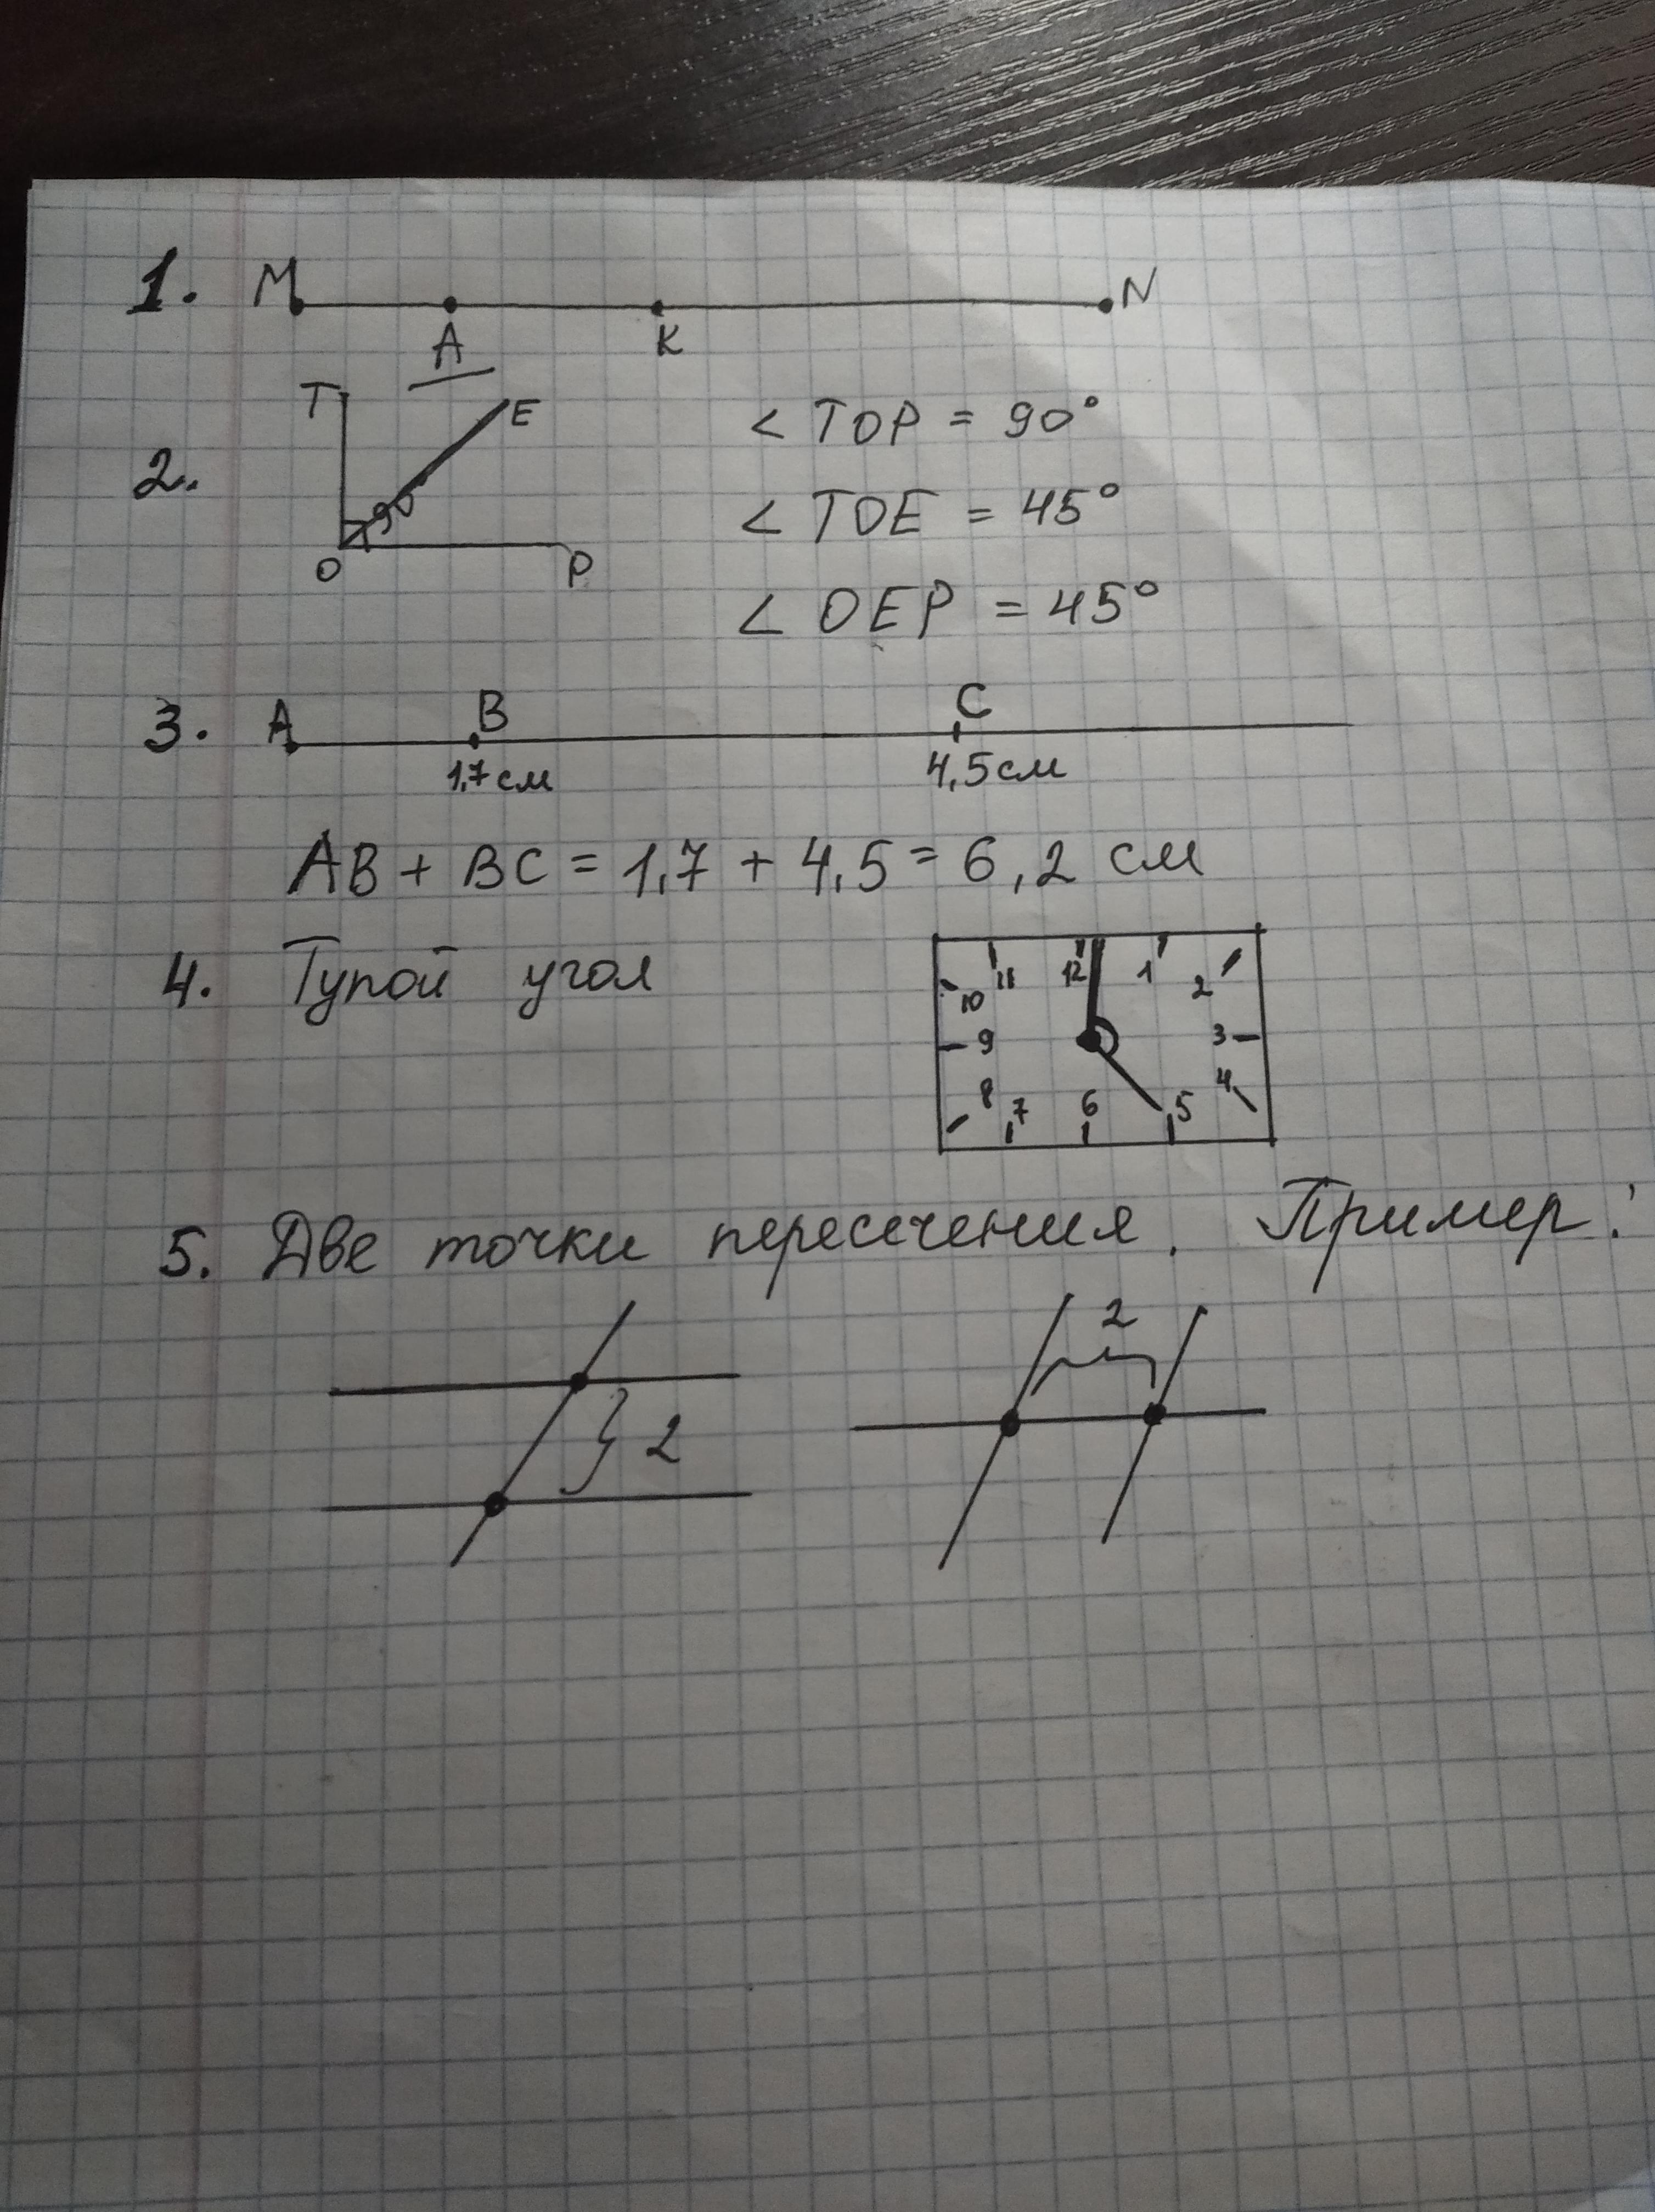 1. M N
A K
T E < TOP = 90°
2. 90° < TOE = 45°
O P < OEP = 45°
3. A B C
1,7 см 4,5 см
AB + BC = 1,7 + 4,5 = 6,2 см
4. Тупой угол
10 11 12 1 2
9 3
8 7 6 5 4
5. Две точки пересечения. Пример:
2
2